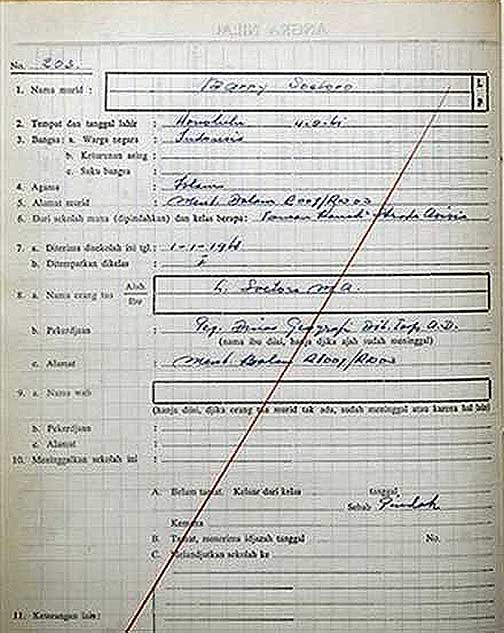 ANGKA NILAI
No. 203.
1. Nama murid : Barry Soetoro L P
2. Tempat dan tanggal lahir : Honolulu 4-8-61
3. Bangsa: a. Warga negara : Indonesia
b. Keturunan asing :
c. Suku bangsa :
4. Agama : Islam
5. Alamat murid : Ment Dalam R007/Rw003
6. Dari sekolah mana (dipindahkan) dan kelas berapa:
7. a. Diterima disekolah ini tgl.: 1-1-1968
b. Ditempatkan dikelas : I
8. a. Nama orang tua Ajah Ibu L. Soetoro M.A.
b. Pekerdjaan : Peg. Dinas Geografi Dit. Top. A.D.
(nama ibu diisi, hanja djika ajah sudah meninggal)
c. Alamat : Ment Dalam R007/Rw003
9. a. Nama wali
(hanja diisi, djika orang tua murid tak ada, sudah meninggal atau karena hal lain)
b. Pekerdjaan :
c. Alamat :
10. Meninggalkan sekolah ini :
A. Belum tamat. Keluar dari kelas tanggal
Sebab Pindah
Kemana
B. Tamat, menerima idjazah tanggal No.
C. Melandjutkan sekolah ke
11. Keterangan lain: